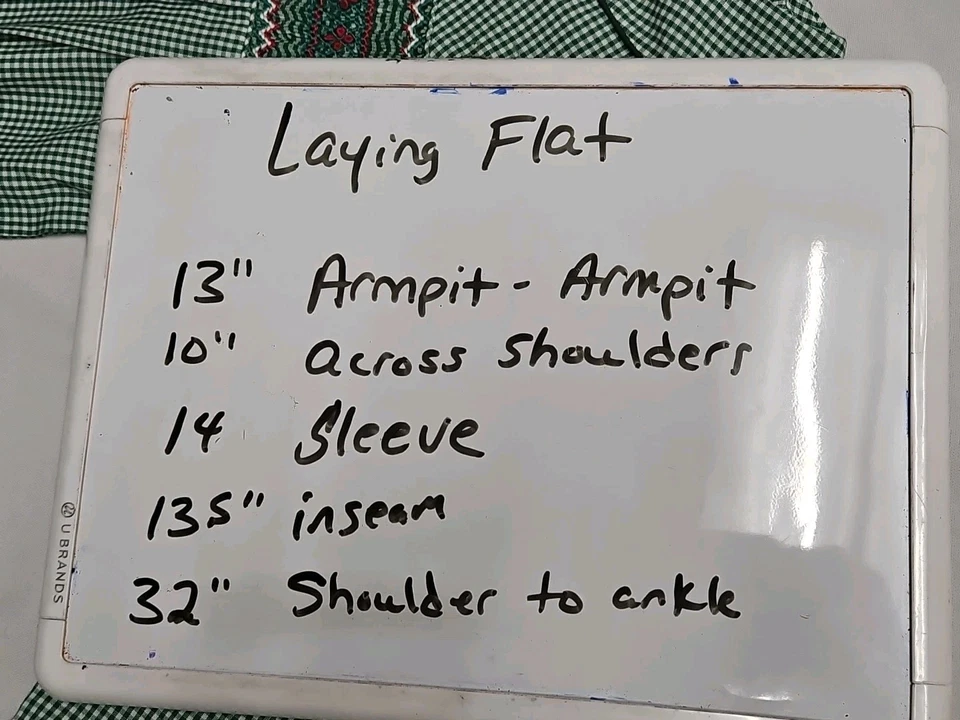 Laying Flat
13" Armpit - Armpit
10" across shoulders
14 Sleeve
135" inseam
32" Shoulder to ankle
U BRANDS